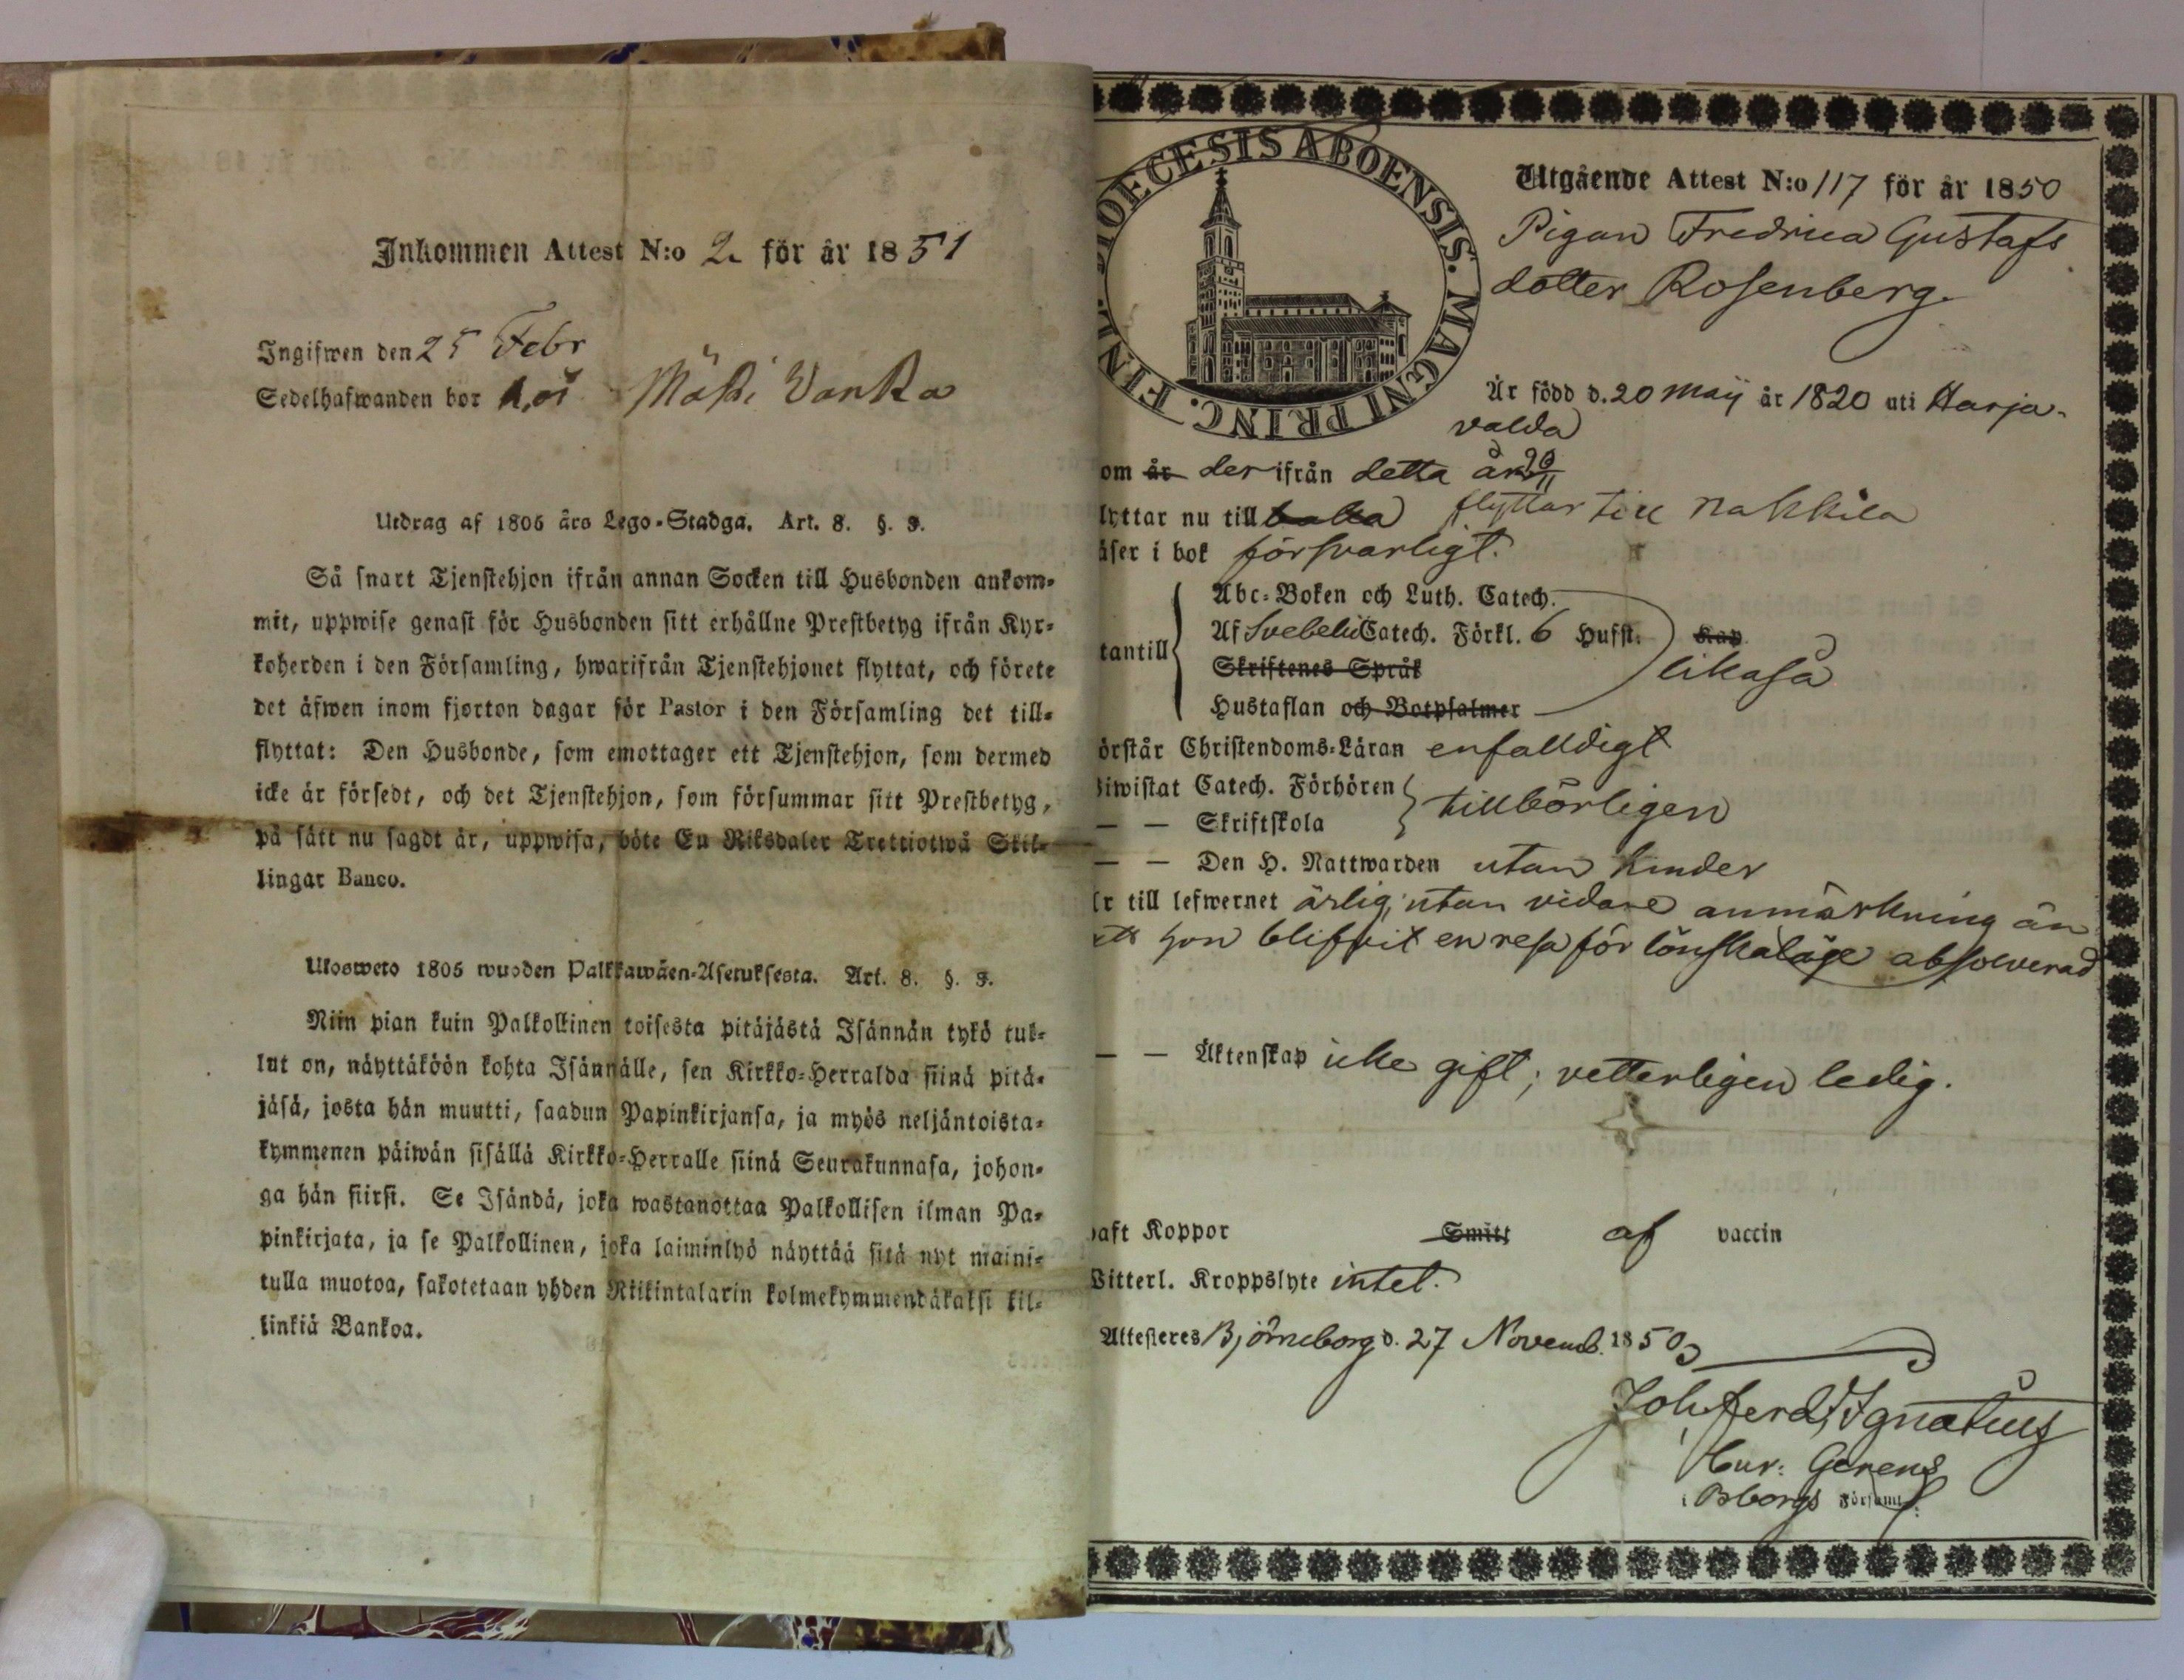 Inkommen Attest N:o 2 för år 1851
Ingifwen den 25 Febr
Sedelhafwanden bor hos Mäki Vanka
Utdrag af 1805 års Lego-Stadga. Art. 8. §. 9.
Så snart Tjenstehjon ifrån annan Socken till Husbonden ankom-
mit, uppwise genast för Husbonden sitt erhållne Prestbetyg ifrån Kyr-
koherden i den Församling, hwarifrån Tjenstehjonet flyttat, och förete
det äfwen inom fjorton dagar för Pastor i den Församling det till-
flyttat: Den Husbonde, som emottager ett Tjenstehjon, som dermed
icke är försedt, och det Tjenstehjon, som försummar sitt Prestbetyg,
på sätt nu sagdt är, uppwisa, böte En Riksdaler Trettiotwå Skil-
lingar Banco.
Ulosweto 1805 wuoden Palkkawäen-Asetuksesta. Art. 8. §. 9.
Niin pian kuin Palkollinen toisesta pitäjästä Isännän tykö tul-
lut on, näyttäköön kohta Isännälle, sen Kirkko-Herralda siinä pitä-
jäsä, josta hän muutti, saadun Papinkirjansa, ja myös neljäntoista-
kymmenen päiwän sisällä Kirkko-Herralle siinä Seurakunnasa, johon-
ga hän siirsi. Se Isändä, joka wastanottaa Palkollisen ilman Pa-
pinkirjata, ja se Palkollinen, joka laiminlyö näyttää sitä nyt maini-
tulla muotoa, sakotetaan yhden Riikintalarin kolmekymmendäkaksi kil-
linkiä Bankoa.
DIOECESIS ABOENSIS. MAGNI PRINC. FINL.
Utgående Attest N:o 117 för år 1850
Pigan Fredrica Gustafs
dotter Rosenberg.
Är född d. 20 Maij år 1820 uti Harja-
valda
om år der ifrån detta år 20/11
lyttar nu till flyttar till Nakkila
äser i bok försvarligt.
tantill
Abc-Boken och Luth. Catech.
Af Svebelii Catech. Förkl. 6 Hufst.
Skriftenes Språk
Hustaflan och Botpsalmer
likaså
örstår Christendoms-Läran enfalldigt
Biwistat Catech. Förhören
— — Skriftskola
tillbörligen
— — Den H. Nattwarden utan hinder
Är till lefwernet ärlig, utan vidare anmärkning än
att hon blifvit en resa för lönskaläge absolverad
— — Äktenskap icke gift; vetterligen ledig.
haft Koppor Smitt af vaccin
Witterl. Kroppslyte intet.
Attesteres Björneborg d. 27 Novemb. 1850
Joh. Ferd. Ignatius
Cur: Gerens
i Bborgs Församl: